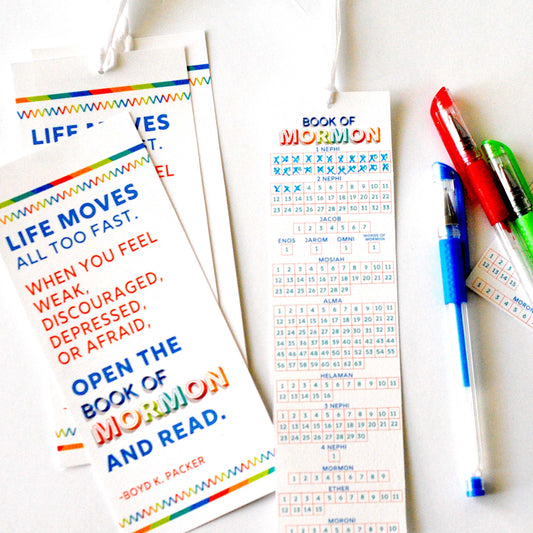 LIFE MOVES
ALL TOO FAST.
WHEN YOU FEEL
WEAK,
DISCOURAGED,
DEPRESSED,
OR AFRAID,
OPEN THE
BOOK OF
MORMON
AND READ.
-BOYD K. PACKER
LIFE MOVES
BOOK OF
MORMON
1 NEPHI
2 NEPHI
4 5 6 7 8 9 10 11
12 13 14 15 16 17 18 19 20 21 22
23 24 25 26 27 28 29 30 31 32 33
JACOB
1 2 3 4 5 6 7
ENOS JAROM OMNI WORDS OF MORMON
1 1 1 1
MOSIAH
1 2 3 4 5 6 7 8 9 10 11
12 13 14 15 16 17 18 19 20 21 22
23 24 25 26 27 28 29
ALMA
1 2 3 4 5 6 7 8 9 10 11
12 13 14 15 16 17 18 19 20 21 22
23 24 25 26 27 28 29 30 31 32 33
34 35 36 37 38 39 40 41 42 43 44
45 46 47 48 49 50 51 52 53 54 55
56 57 58 59 60 61 62 63
HELAMAN
1 2 3 4 5 6 7 8 9 10 11
12 13 14 15 16
3 NEPHI
1 2 3 4 5 6 7 8 9 10 11
12 13 14 15 16 17 18 19 20 21 22
23 24 25 26 27 28 29 30
4 NEPHI
1
MORMON
1 2 3 4 5 6 7 8 9
ETHER
1 2 3 4 5 6 7 8 9 10 11
12 13 14 15
MORONI
1 2 3 4 5
12 13 14 15
MORON